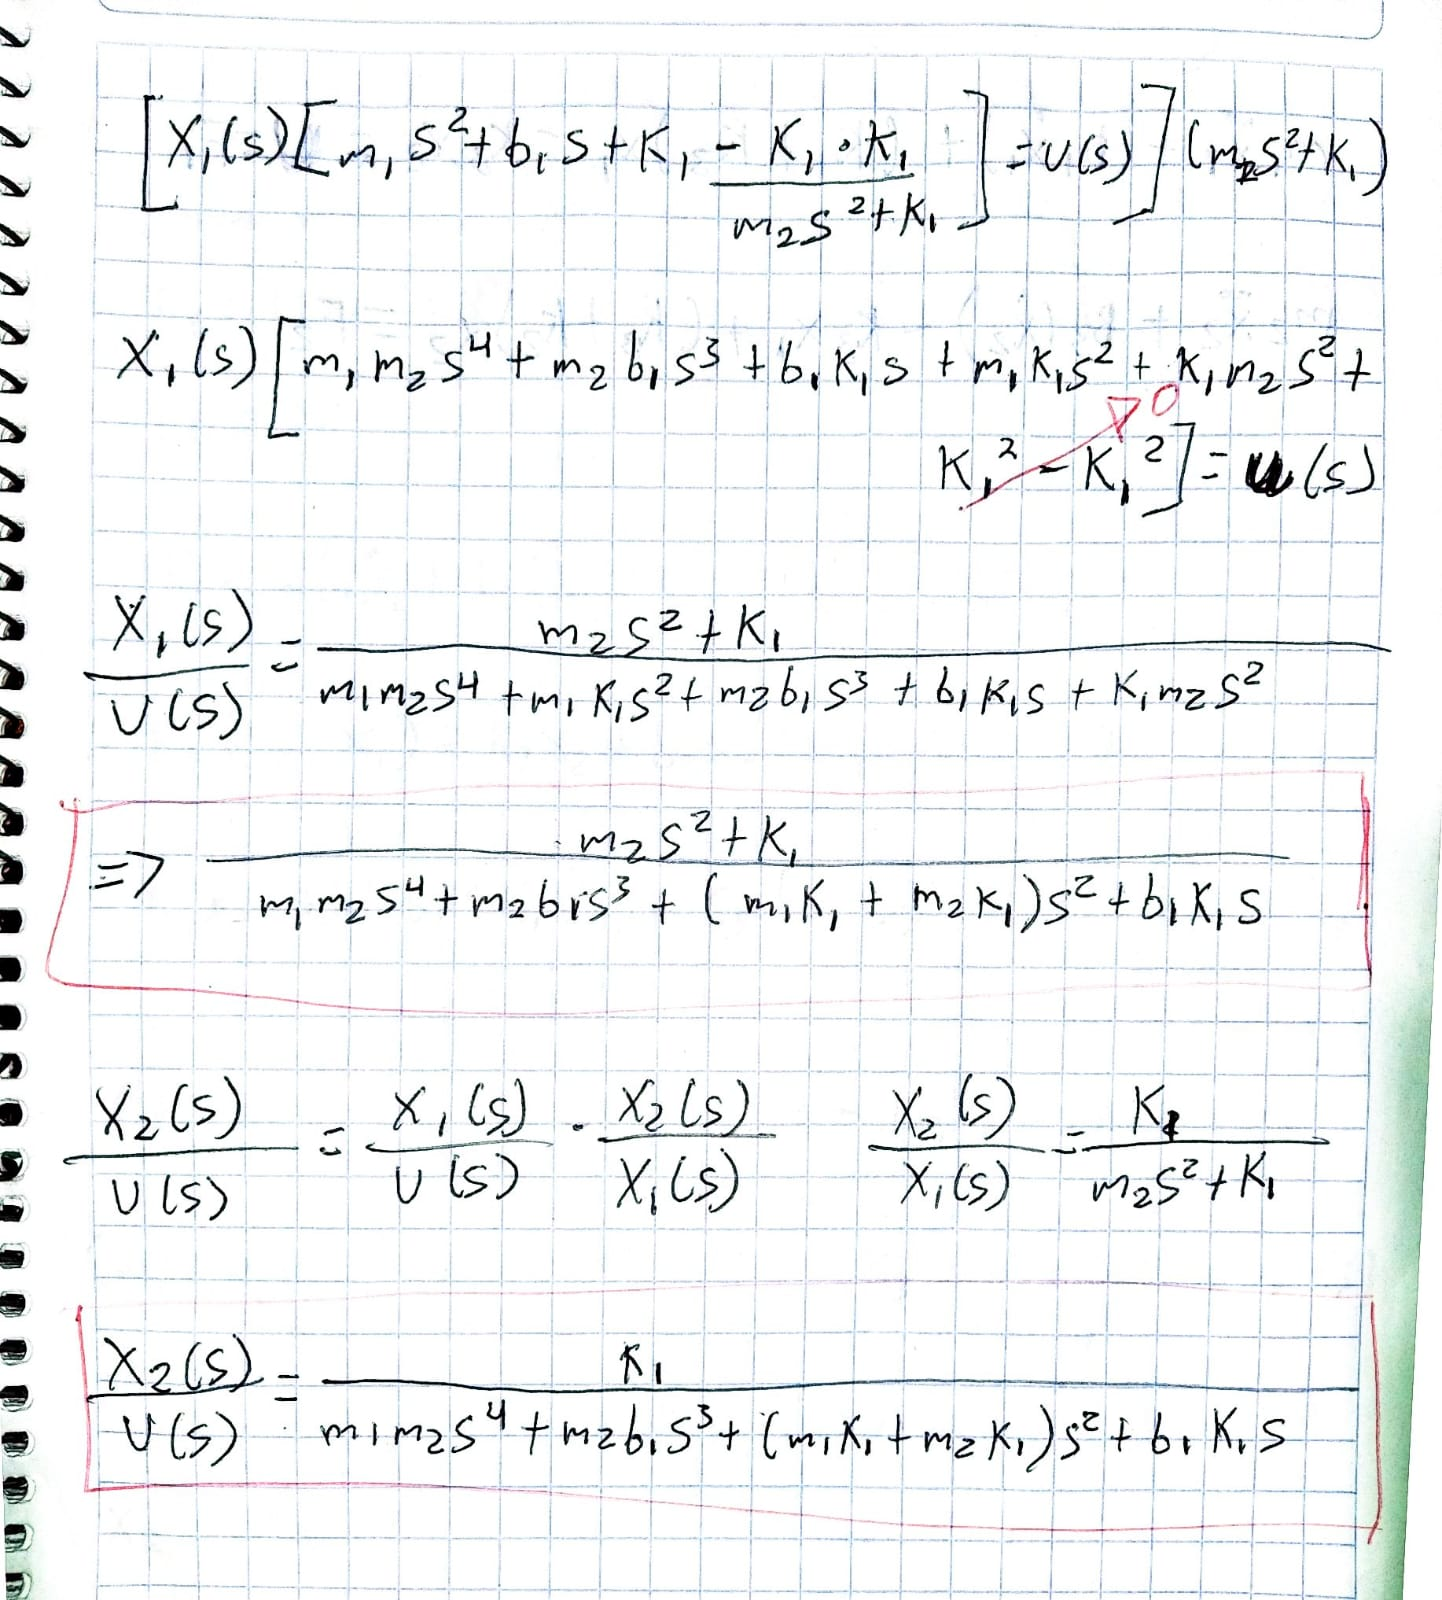 [X₁(s)[m₁s²+b₁s+K₁ - K₁·K₁/(m₂s²+K₁)] = U(s)](m₂s²+K₁)
X₁(s)[m₁m₂s⁴ + m₂b₁s³ + b₁K₁s + m₁K₁s² + K₁m₂s² +
0
K₁² - K₁²] = u(s)
X₁(s)/U(s) = (m₂s²+K₁)/(m₁m₂s⁴ + m₁K₁s² + m₂b₁s³ + b₁K₁s + K₁m₂s²)
=> (m₂s²+K₁)/(m₁m₂s⁴ + m₂b₁s³ + (m₁K₁ + m₂K₁)s² + b₁K₁s)
X₂(s)/U(s) = X₁(s)/U(s) · X₂(s)/X₁(s)   X₂(s)/X₁(s) = K₁/(m₂s²+K₁)
X₂(s)/U(s) = K₁/(m₁m₂s⁴ + m₂b₁s³ + (m₁K₁ + m₂K₁)s² + b₁K₁s)